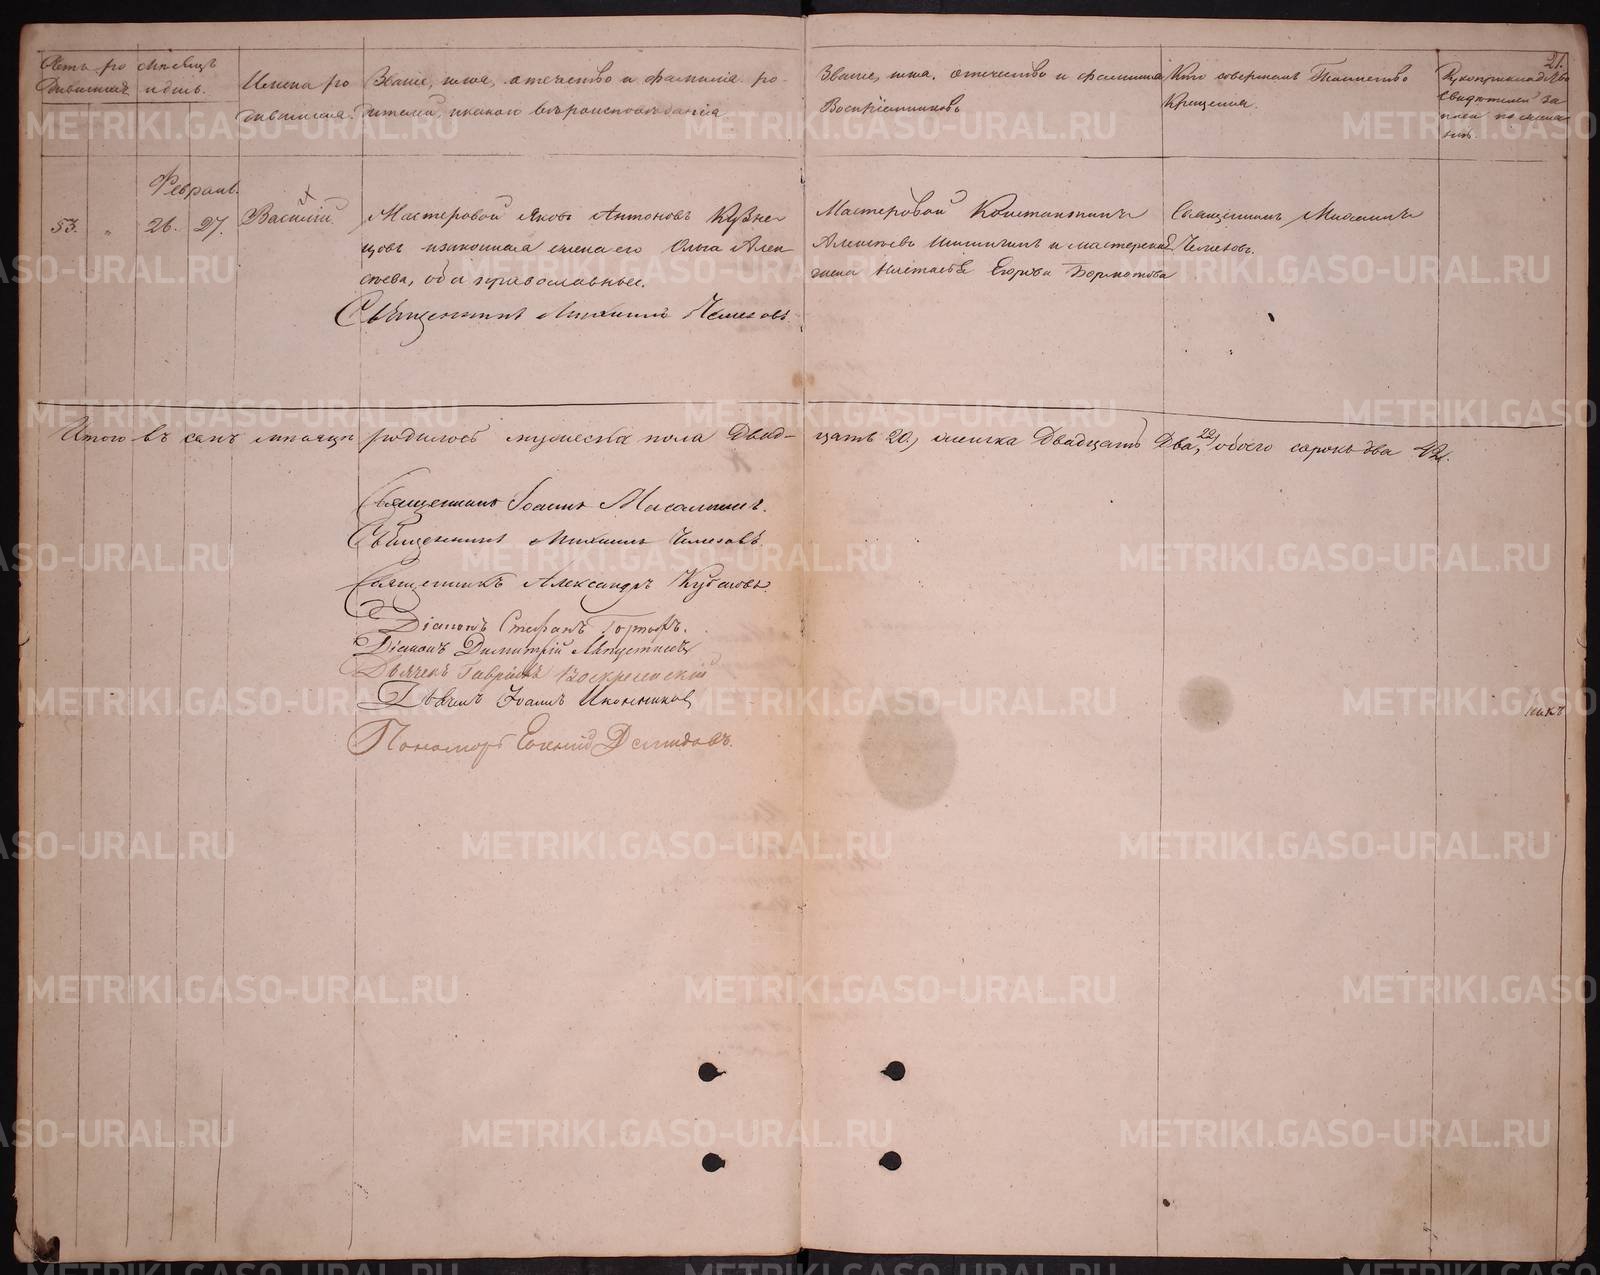 21.
Счетъ ро
дившихся
Мѣсяцъ
и день.
Имена ро
дившихся.
Званіе, имя, отечество и фамилія ро-
дителей, и какого вѣроисповѣданія
Званіе, имя, отечество и фамилія
Воспріемниковъ
Кто совершалъ Таинство
Крещенія.
Рукоприкладство
свидѣтелей за
писи по жела
нію.
Февраль.
53. " 26. 27. Василій.
Мастеровой Яковъ Антоновъ Кузне-
цовъ и законная жена его Ольга Алек-
сѣева, оба православные.
Священникъ Михаилъ Челеховъ.
Мастеровой Константинъ
Алексѣевъ и мастерская
жена Настасья Егорова Бормотова
Священникъ Михаилъ
Челеховъ.
Итого въ семъ мѣсяцѣ родилось мужеска пола двад-
цать 20, женска двадцать два, 22, обоего сорокъ два 42.
Священникъ Іоаннъ
Священникъ Михаилъ Челеховъ.
Священникъ Александръ
Діаконъ Стефанъ
Діаконъ Димитрій
Дьячекъ Гавріилъ Воскресенскій
Дьячекъ Іоаннъ Иконниковъ
Пономарь Евгеній Демидовъ.
METRIKI.GASO-URAL.RU